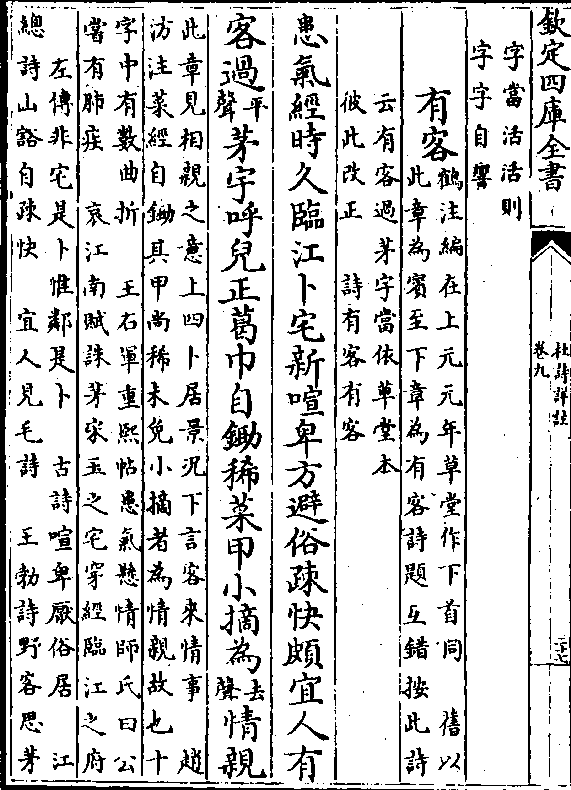 欽定四庫全書
杜詩詳註
卷九
二十七
字當活活則
字字自響
有客
鶴注編在上元元年草堂作下首同　舊以
此章為賓至下章為有客詩題互錯按此詩
云有客過茅宇當依草堂本
彼此改正　詩有客有客
患氣經時久臨江卜宅新喧卑方避俗疎快頗宜人有
客過平聲茅宇呼兒正葛巾自鋤稀菜甲小摘為去聲情親
此章見相親之意上四卜居景況下言客來情事　趙
汸注菜經自鋤其甲尚稀未免小摘者為情親故也十
字中有數曲折　王右軍重熙帖患氣懸情師氏曰公
嘗有肺疾　哀江南賦誅茅宋玉之宅穿經臨江之府
左傳非宅是卜惟鄰是卜　古詩喧卑厭俗居　江
總詩山谿自疎快　宜人見毛詩　王勃詩野客思茅